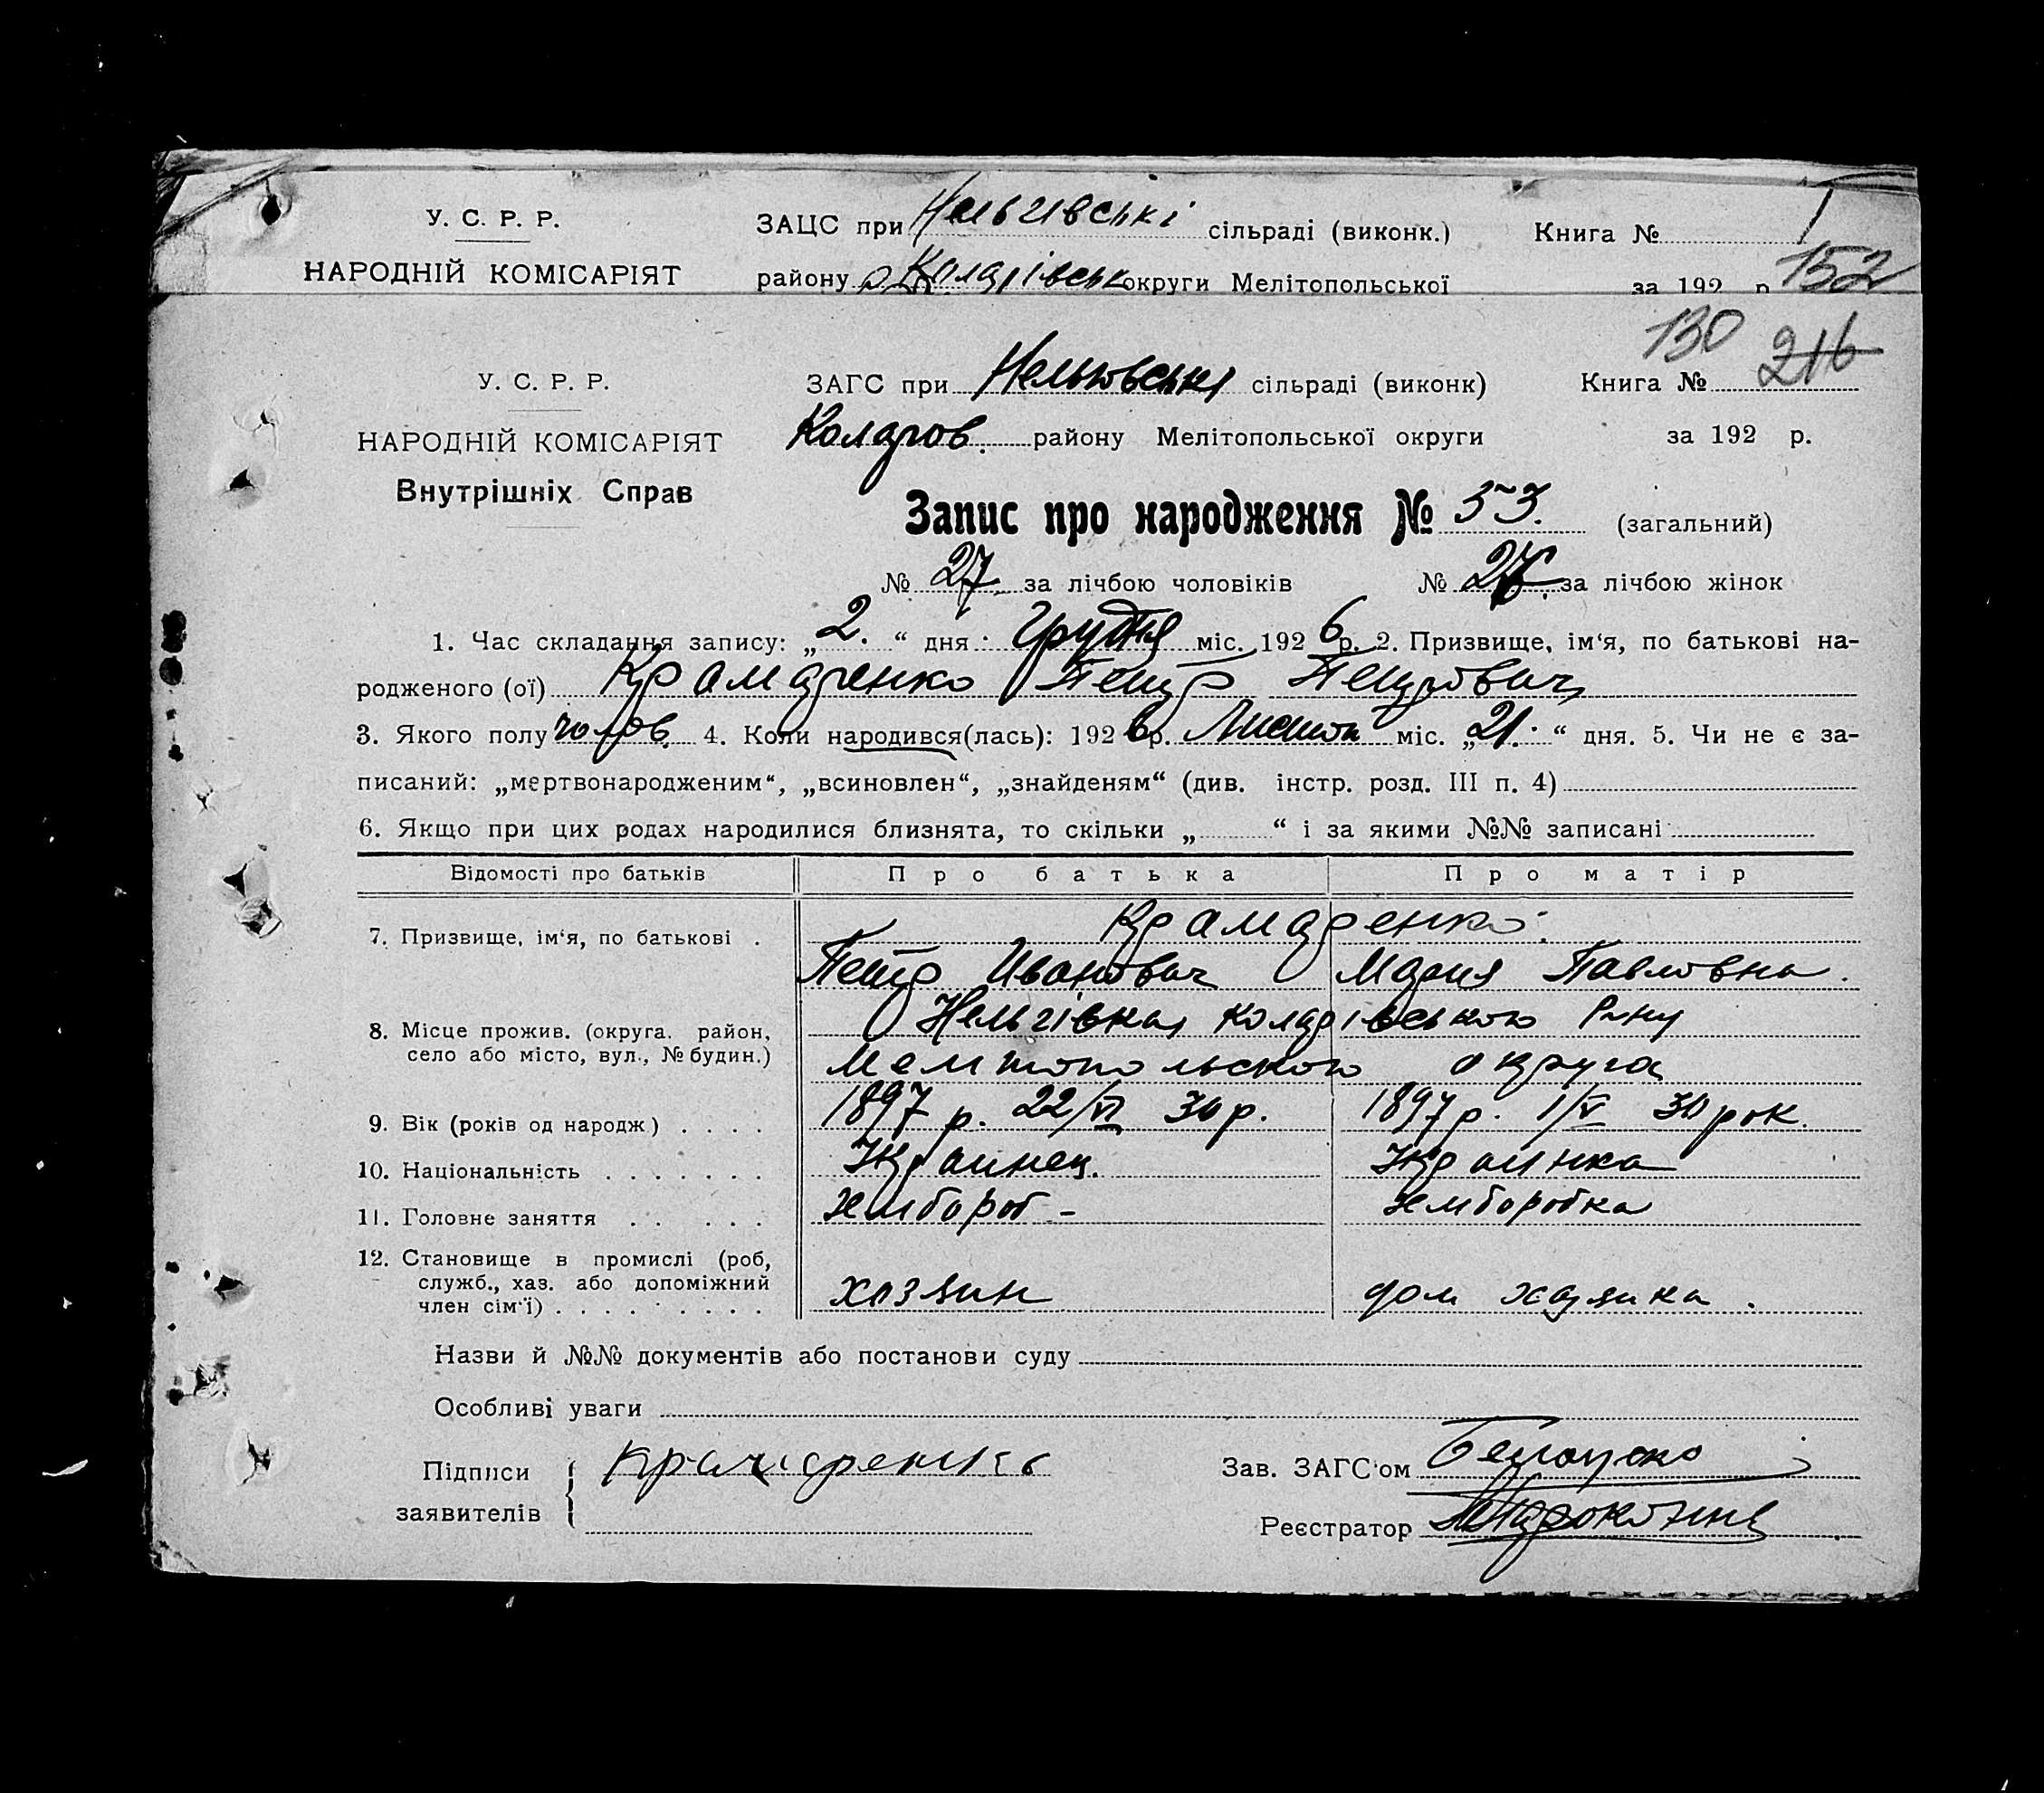 У. С. Р. Р. ЗАЦС при Нельгівські сільраді (виконк.) Книга № 1
НАРОДНІЙ КОМІСАРІЯТ району Коларівськ округи Мелітопольської за 192 р 152
130 216
У. С. Р. Р. ЗАГС при Нельговські сільраді (виконк) Книга №
НАРОДНІЙ КОМІСАРІЯТ Коларов. району Мелітопольської округи за 192 р.
Внутрішніх Справ
Запис про народження № 53. (загальний)
№ 27 за лічбою чоловіків № за лічбою жінок
1. Час складання запису: „2.“ дня Грудня міс. 1926 р. 2. Призвище, ім‘я, по батькові на-
родженого (ої) Крамаренко Петр Петрович
3. Якого полу чолов. 4. Коли народився(лась): 1926 р. Листоп міс. „21.“ дня. 5. Чи не є за-
писаний: „мертвонародженим“, „всиновлен“, „знайденям“ (див. інстр. розд. III п. 4)
6. Якщо при цих родах народилися близнята, то скільки „ “ і за якими №№ записані
Відомості про батьків Про батька Про матір
7. Призвище, ім‘я, по батькові . Крамаренко.
Петр Иванович Мария Павловна.
8. Місце прожив. (округа, район, Нельгівка, Коларівського Р-ну
село або місто, вул., № будин.) Мелитопольского округа
9. Вік (років од народж) . . . . 1897 р. 22/VI 30 р. 1897 р. 1/V 30 рок.
10. Національність . . . . . . . Украинец. Украинка
11. Головне заняття . . . . . хлебороб - хлеборобка
12. Становище в промислі (роб,
служб., хаз. або допоміжний
член сім‘ї) . . . . . . . . . хозяин дом хазяйка.
Назви й №№ документів або постанови суду
Особливі уваги
Підписи Крамаренко Зав. ЗАГС‘ом
заявителів Реєстратор